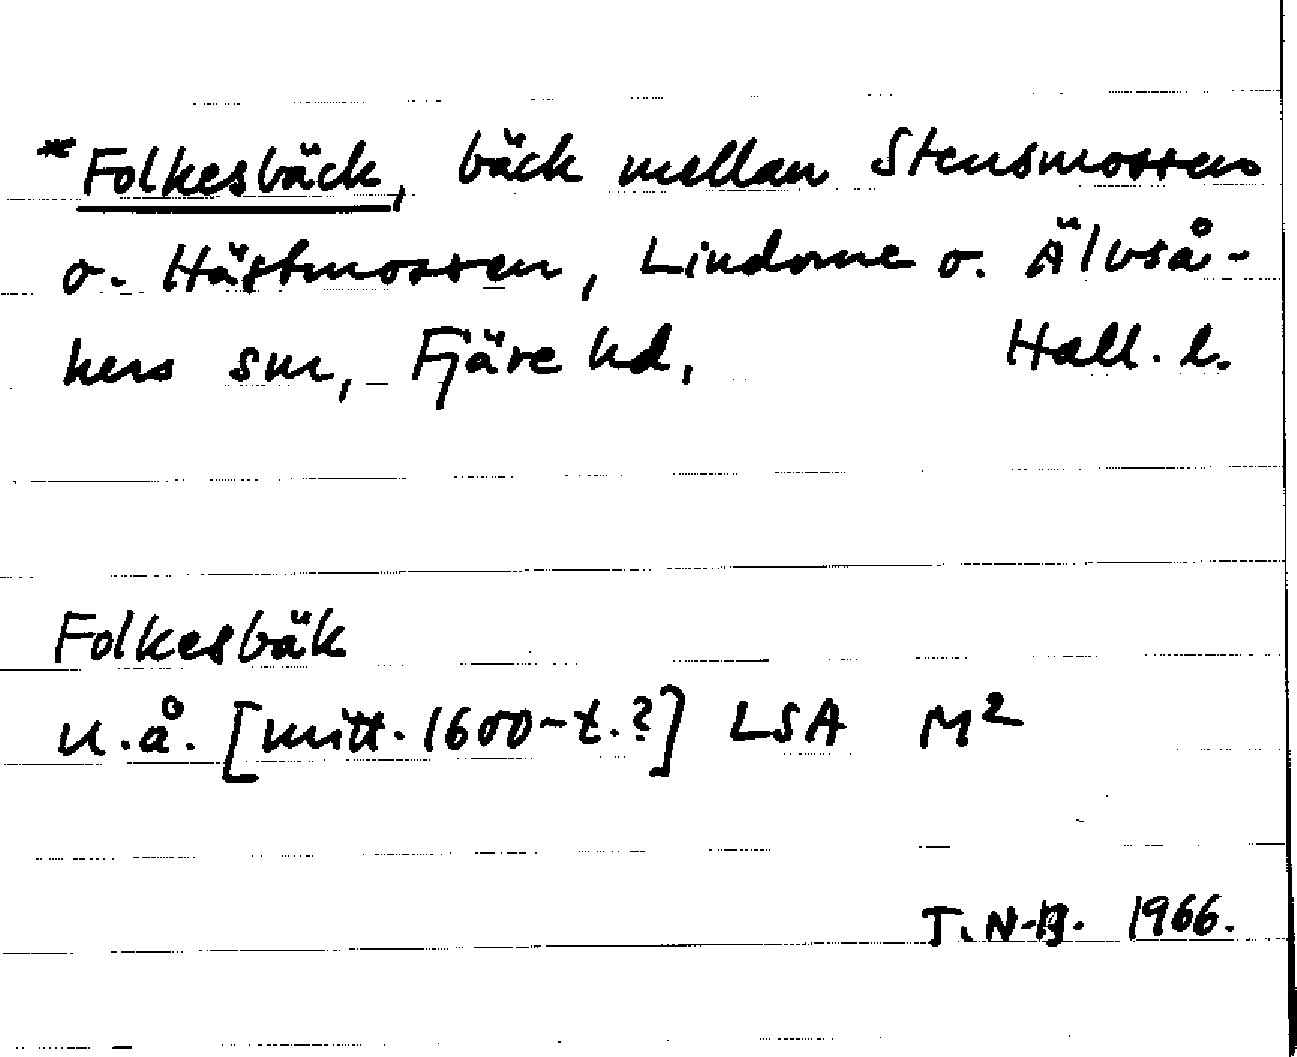 *Folkesbäck, bäck mellan Stensmossen
o. Hästmossen, Lindome o. Älvså-
kers snr, Fjäre hd, Hall. l.
Folkesbäk
u.å. [mitt. 1600-t.?] LSA M²
T. N-B. 1966.